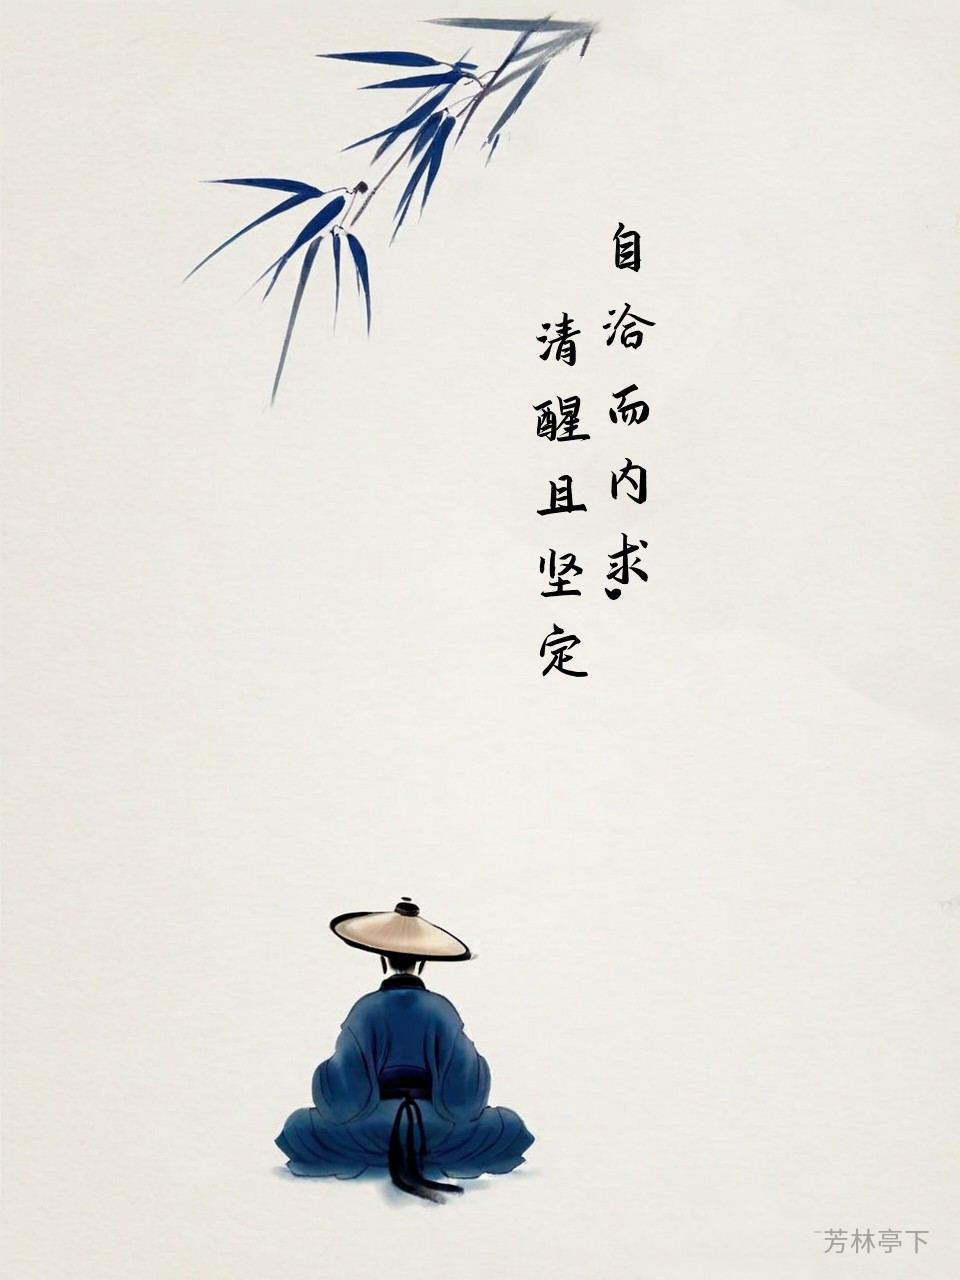 自洽而内求
清醒且坚定
芳林亭下